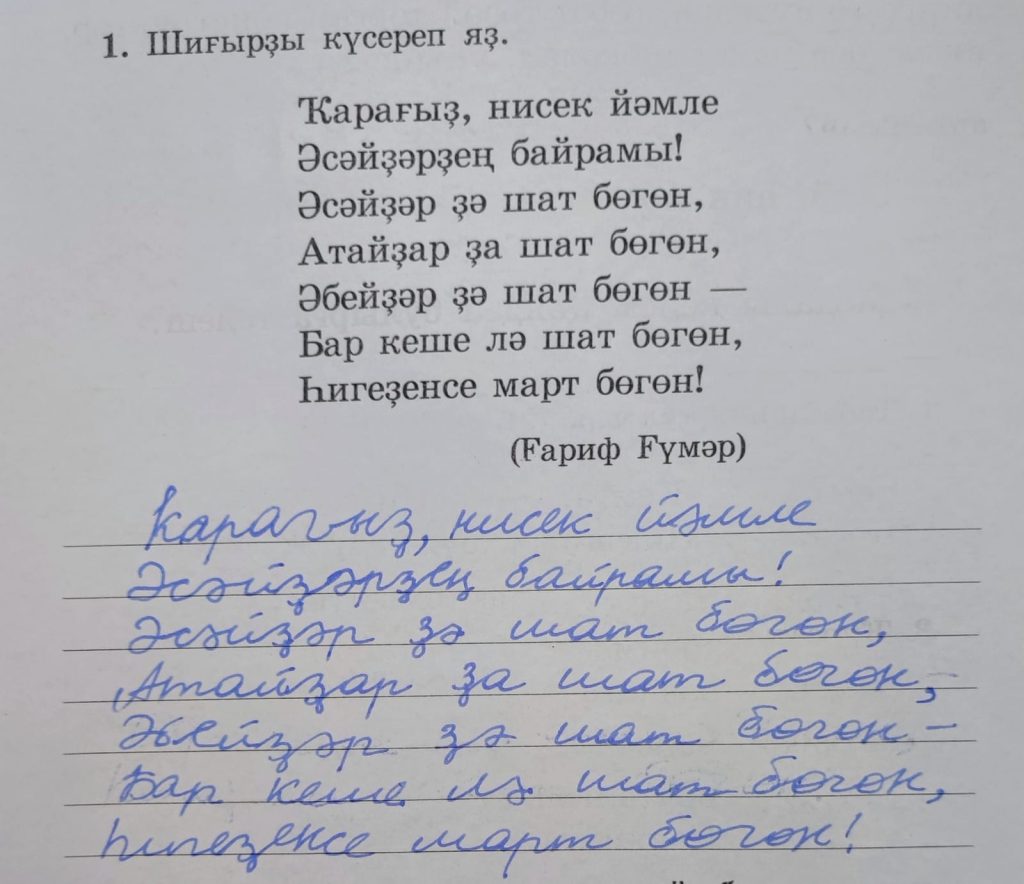 1. Шиғырҙы күсереп яҙ.
Ҡарағыҙ, нисек йәмле
Әсәйҙәрҙең байрамы!
Әсәйҙәр ҙә шат бөгөн,
Атайҙар ҙа шат бөгөн,
Әбейҙәр ҙә шат бөгөн —
Бар кеше лә шат бөгөн,
Һигеҙенсе март бөгөн!
(Ғариф Ғүмәр)
Ҡарағыҙ, нисек йәмле
Әсәйҙәрҙең байрамы!
Әсәйҙәр ҙә шат бөгөн,
Атайҙар ҙа шат бөгөн, –
Әбейҙәр ҙә шат бөгөн –
Бар кеше лә шат бөгөн,
Һигеҙенсе март бөгөн!